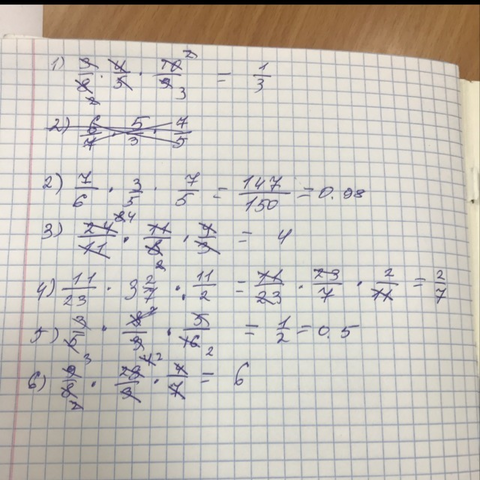 1) 3/8 · 4/5 · 10/9 2 2 3 = 1/3
2) 6/7 · 5/3 · 7/5
2) 7/6 · 3/5 · 7/5 = 147/150 = 0.98
3) 24/11 · 11/8 · 4/3 = 4
4) 11/23 · 3 2/7 : 11/2 = 11/23 · 23/7 · 2/11 = 2/7
5) 3/5 · 8/3 · 5/16 2 = 1/2 = 0.5
6) 9/8 · 28/3 · 4/7 = 6